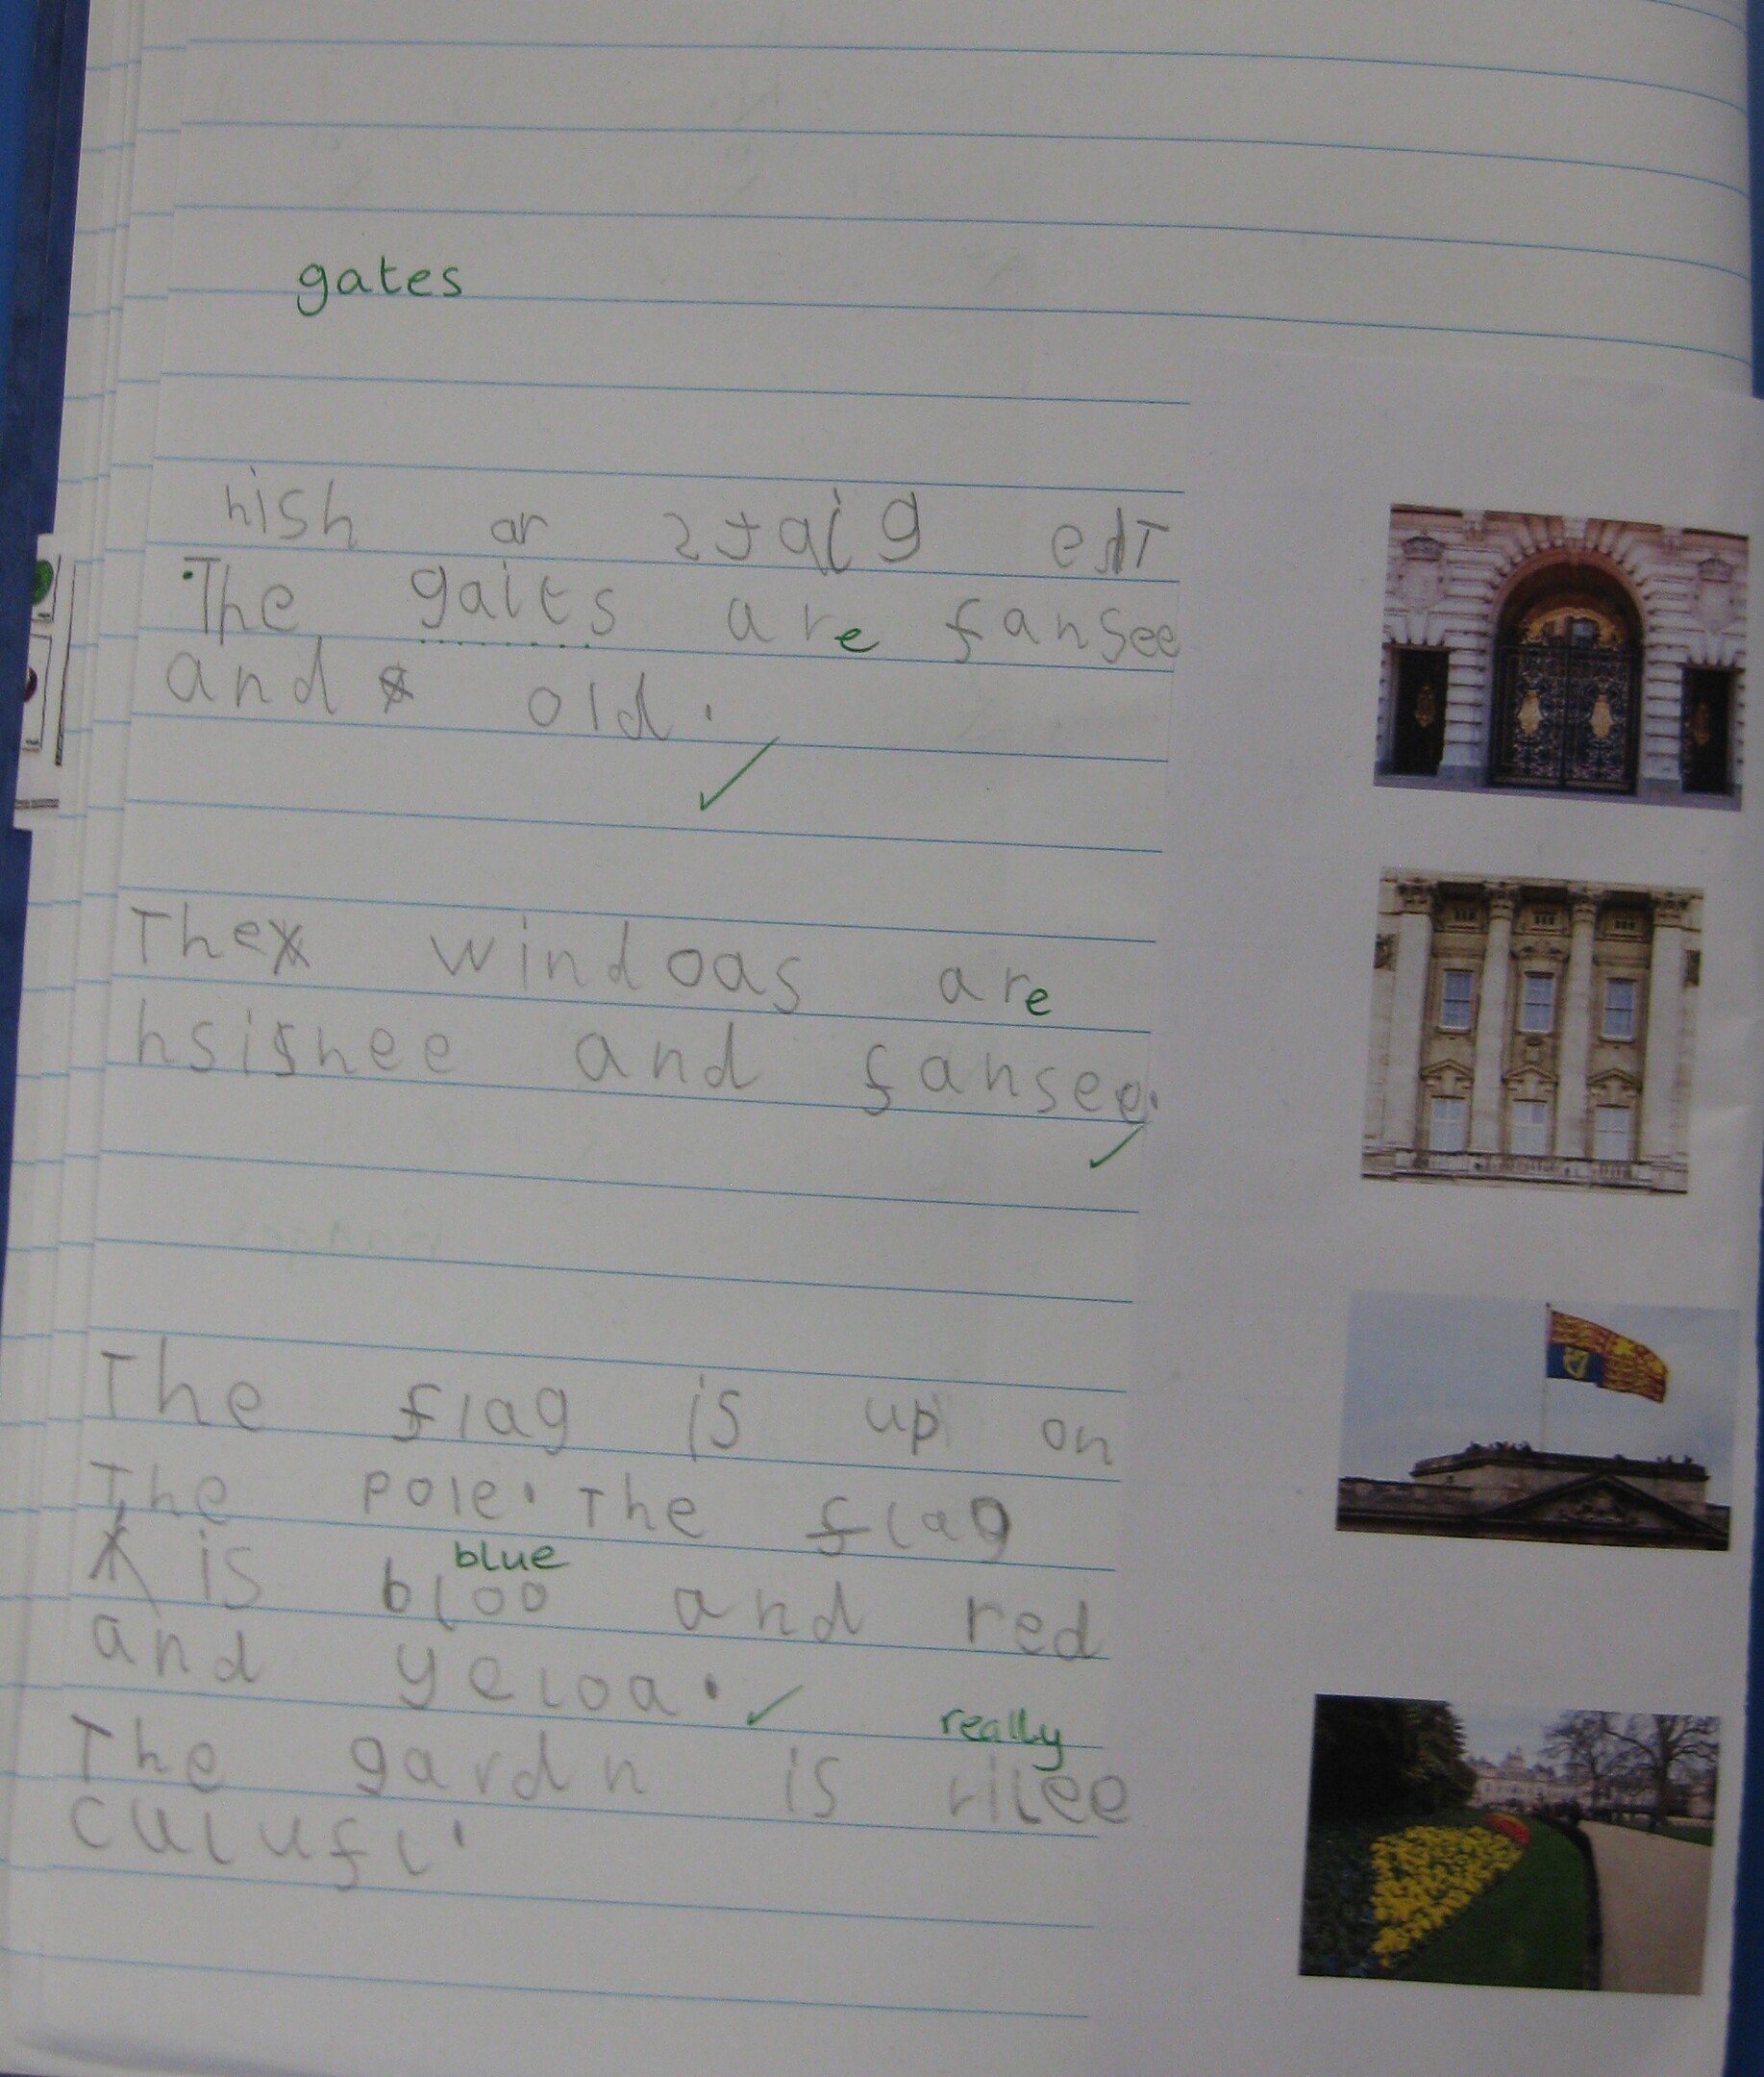 gates
hish ar staig edT
The gaits are fansee
and old.
The windoas are
hsishee and fansee.
The flag is up on
The pole. The flag
blue
is bloo and red
and yeloa.
really
The gardn is rilee
culufl.